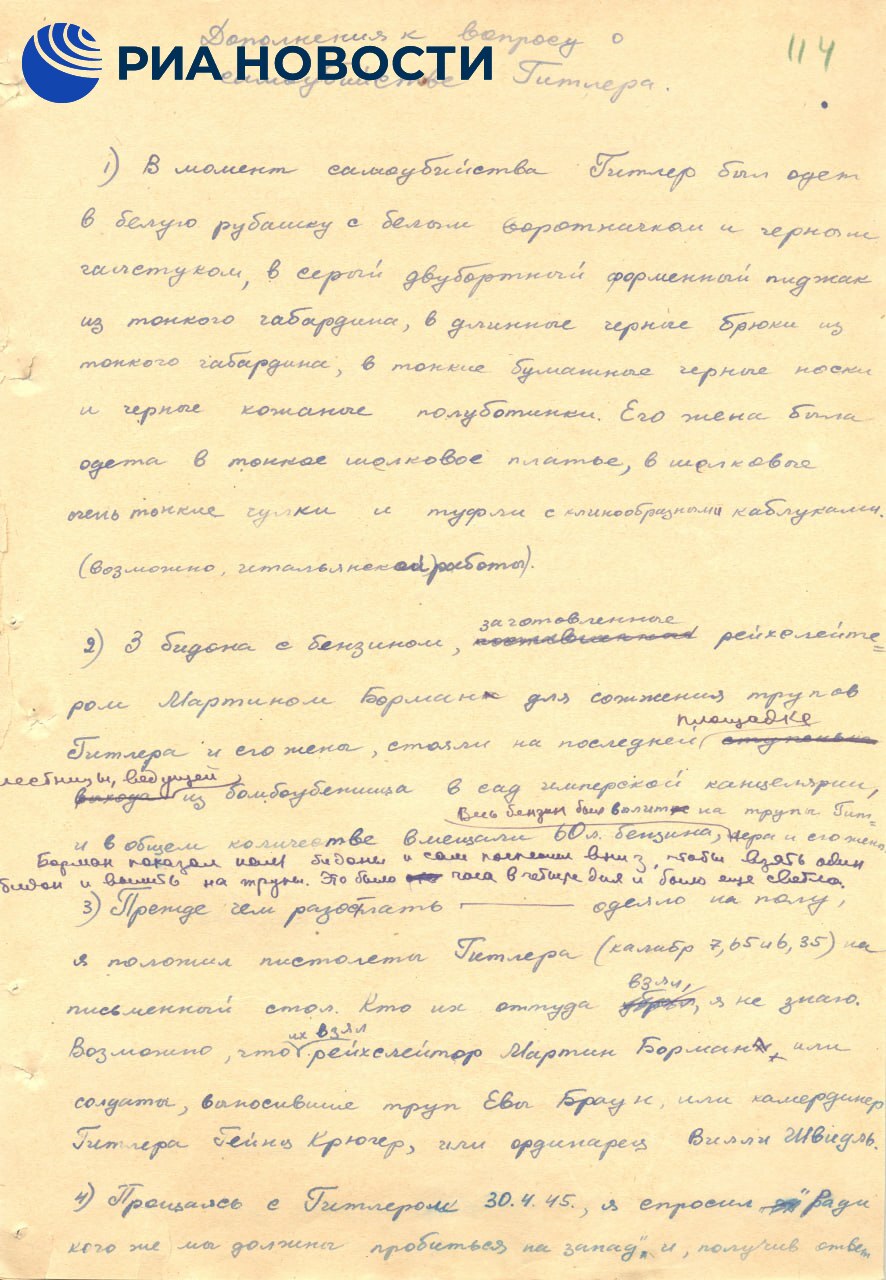 Дополнения к вопросу о
114
РИА НОВОСТИ
самоубийстве Гитлера.
1) В момент самоубийства Гитлер был одет
в белую рубашку с белым воротничком и черным
галстуком, в серый двубортный форменный пиджак
из тонкого габардина, в длинные черные брюки из
тонкого габардина, в тонкие бумажные черные носки
и черные кожаные полуботинки. Его жена была
одета в тонкое шелковое платье, в шелковые
очень тонкие чулки и туфли с клинообразными каблуками.
(возможно, итальянской работы).
заготовленные
2) 3 бидона с бензином, рейхслейте=
ром Мартином Борман для сожжения трупов
площадке
Гитлера и его жены, стояли на последней
лестницы, ведущей
выхода из бомбоубежища в сад имперской канцелярии,
Весь бензин был вылит на трупы Гит=
и в общем количестве вмещали 60 л. бензина, лера и его жены
Борман показал нам бидоны и сам поспешил вниз, чтобы взять один
бидон и вылить на трупы. Это было часа в четыре дня и было еще светло.
3) Прежде чем разостлать одеяло на полу,
я положил пистолеты Гитлера (калибр 7,65 и 6,35) на
взял,
письменный стол. Кто их оттуда я не знаю.
их взял
Возможно, что рейхслейтор Мартин Борман, или
солдаты, выносившие труп Евы Браун, или камердинер
Гитлера Гейнц Крюгер, или ординарец Вилли Швидль.
4) Прощаясь с Гитлером 30.4.45., я спросил "Ради
кого же мы должны пробиться на запад", и, получив ответ